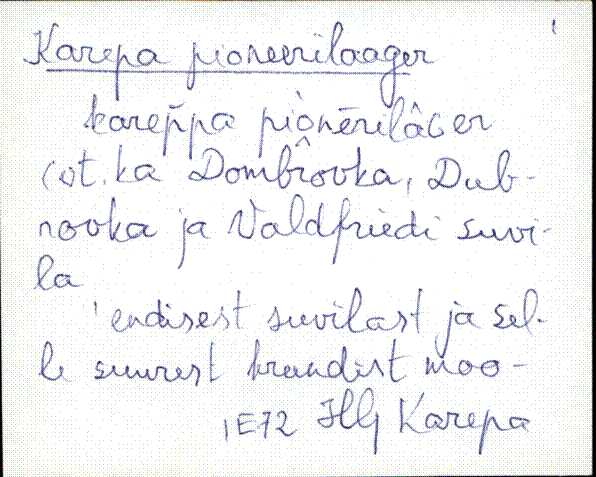 Karepa pioneerilaager
karep̆pa piònērilâGer
(vt. ka Dombrovka, Dub-
rovka ja Valdfriedi suvi-
la
'endisest suvilast ja sel-
le suurest krundist moo-
IE72 HG Karepa